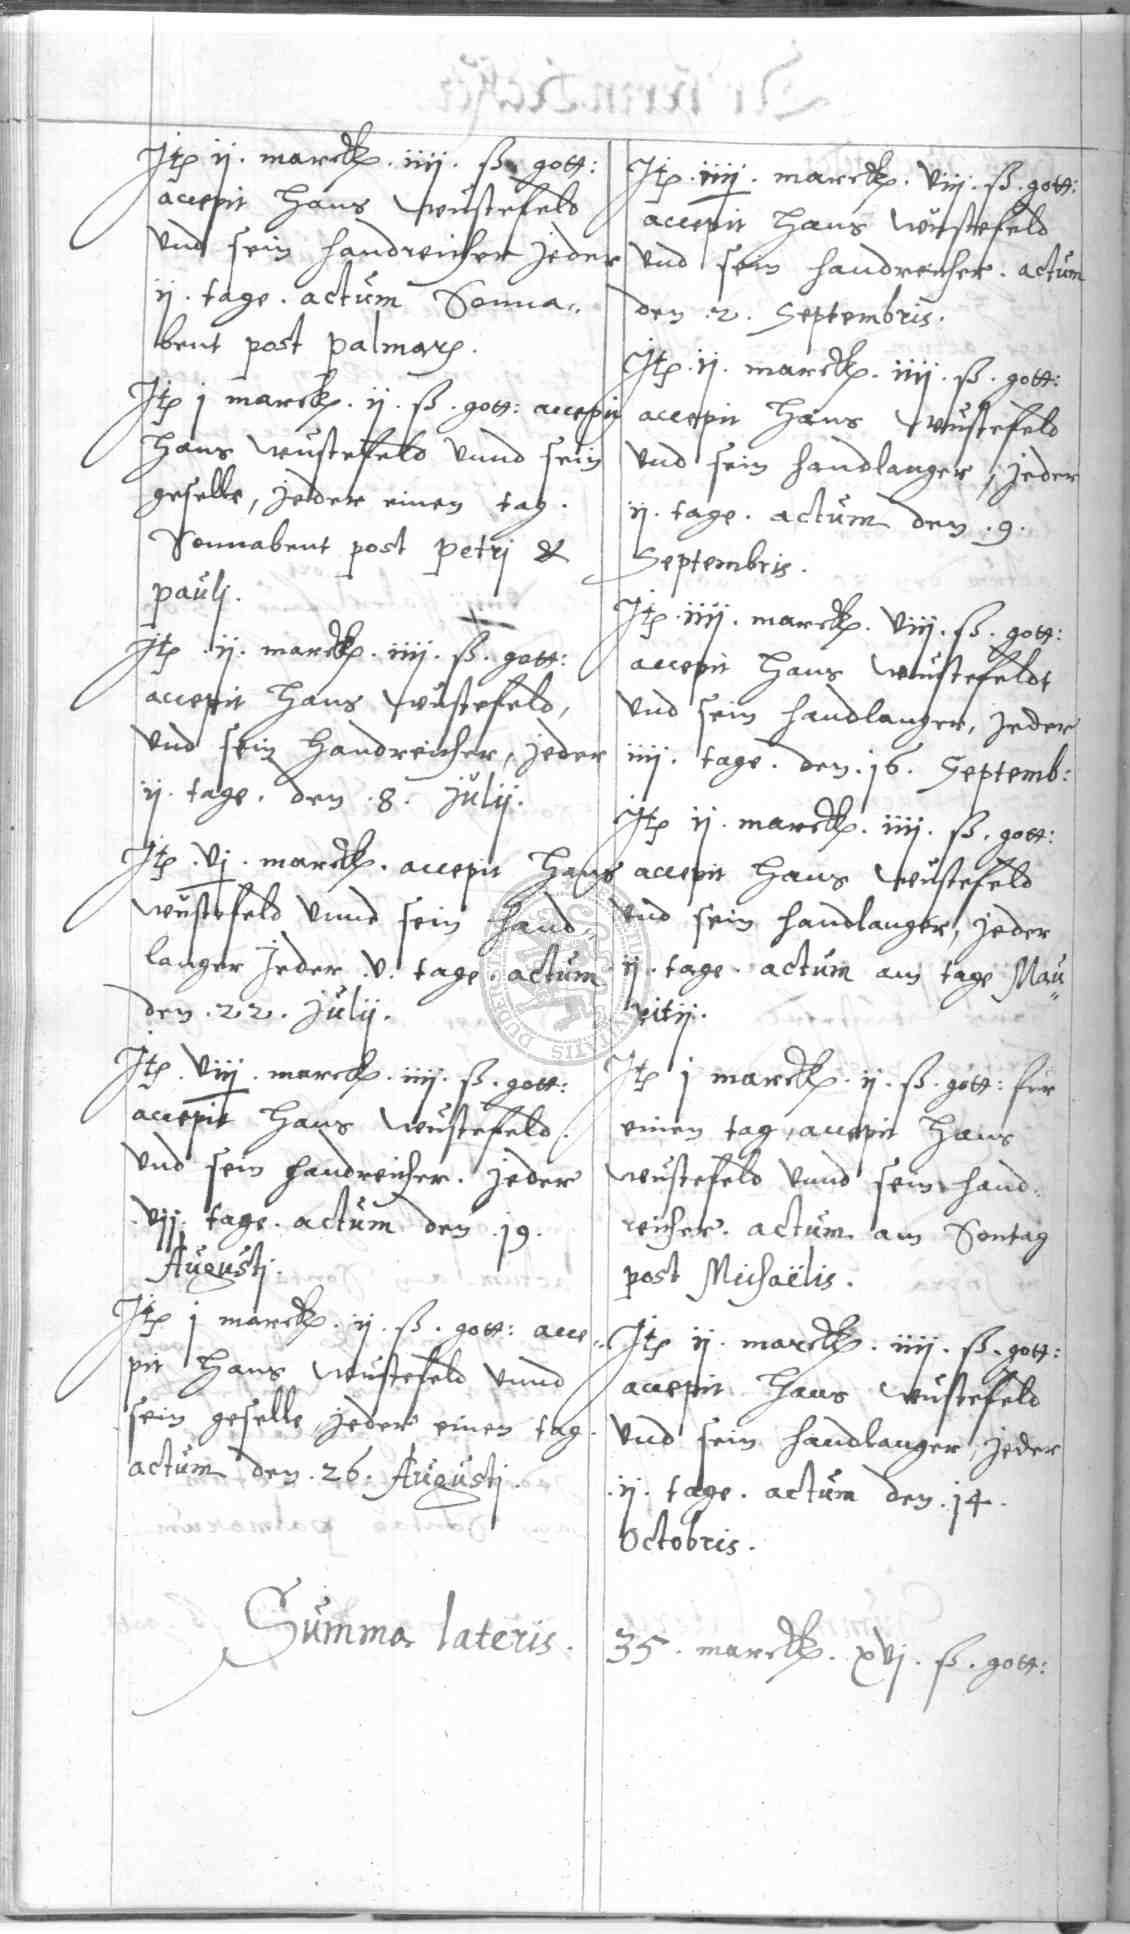 Itē ij. marck. iiij. ß. gott:
accepit Hans Wustefeld
Vnd sein handreicher Jeder
ij. tage. actum Sonna„
bent post palmarū.
Itē j marck. ij. ß. gott: accepit
Hans Wustefeld Vnnd sein
geselle, Jeder einen tag.
Sonnabent post Petrj &
paulj.
Itē ij. marck. iiij. ß. gott:
accepit Hans Wustefeld,
Vnd sein Handreicher, Jeder
ij. tage. den .8. Julij.
Itē .vj. marck. accepit Hans
Wustefeld Vnnd sein Hand„
langer Jeder .v. tage. actum
den .22. Julij.
Itē .viij. marck. iiij. ß. gott:
accepit Hans Wustefeld.
Vnd sein handreicher. Jeder
.vij. tage. actum den .19.
Augustj.
Itē j marck. ij. ß. gott: acce„
pit Hans Wustefeld Vnnd
sein geselle Jeder einen tag.
actum den .26. Augustj.
Itē .iiij. marck. viij. ß. gott:
accepit Hans Wustefeld
Vnd sein handreicher. actum
den .2. Septembris.
Itē .ij. marck. iiij. ß. gott:
accepit Hans Wustefeld
Vnd sein handlanger, Jeder
ij. tage. actum den .9.
Septembris.
Itē .iiij. marck. viij. ß. gott:
accepit Hans Wustefeldt
Vnd sein handlanger, Jeder
iiij. tage. den .16. Septemb:
Itē ij. marck. iiij. ß. gott:
accepit Hans Wustefeld
Vnd sein handlanger, Jeder
ij. tage. actum am tage Mau„
ritij.
Itē j marck. ij. ß. gott: fur
einen tag, accepit Hans
Wustefeld Vnnd sein hand„
reicher. actum am Sontag
post Michaëlis.
Itē ij. marck. iiij. ß. gott:
accepit Hans Wustefeld
Vnd sein handlanger Jeder
.ij. tage. actum den .14.
Octobris.
Summa lateris. 35. marck. xvj. ß. gott: